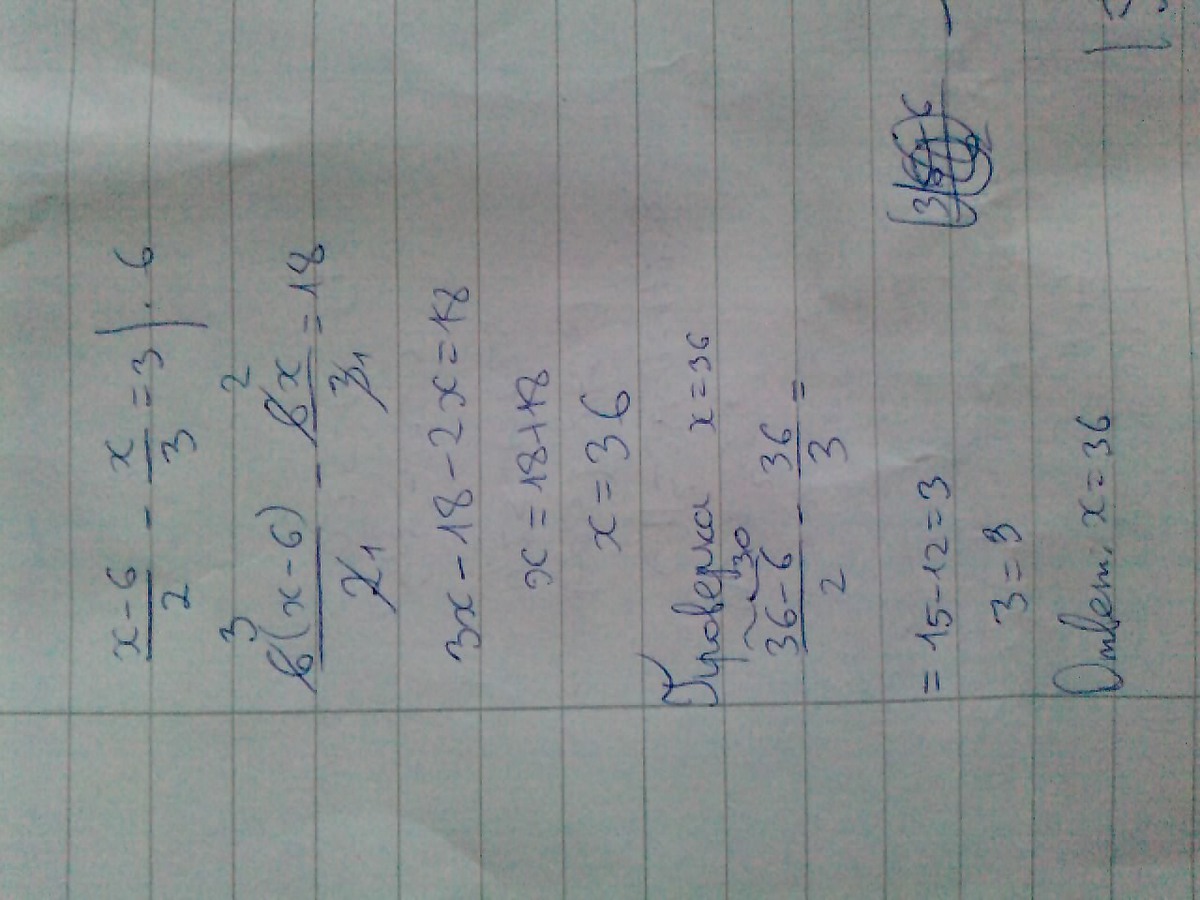 (x-6)/2 - x/3 = 3 | · 6
6(x-6)/2 - 6x/3 = 18
3 1 2 1
3x-18-2x=18
x=18+18
x=36
Проверка x=36
(36-6)/2 - 36/3 =
30
=15-12=3
3=3
Ответ: x=36